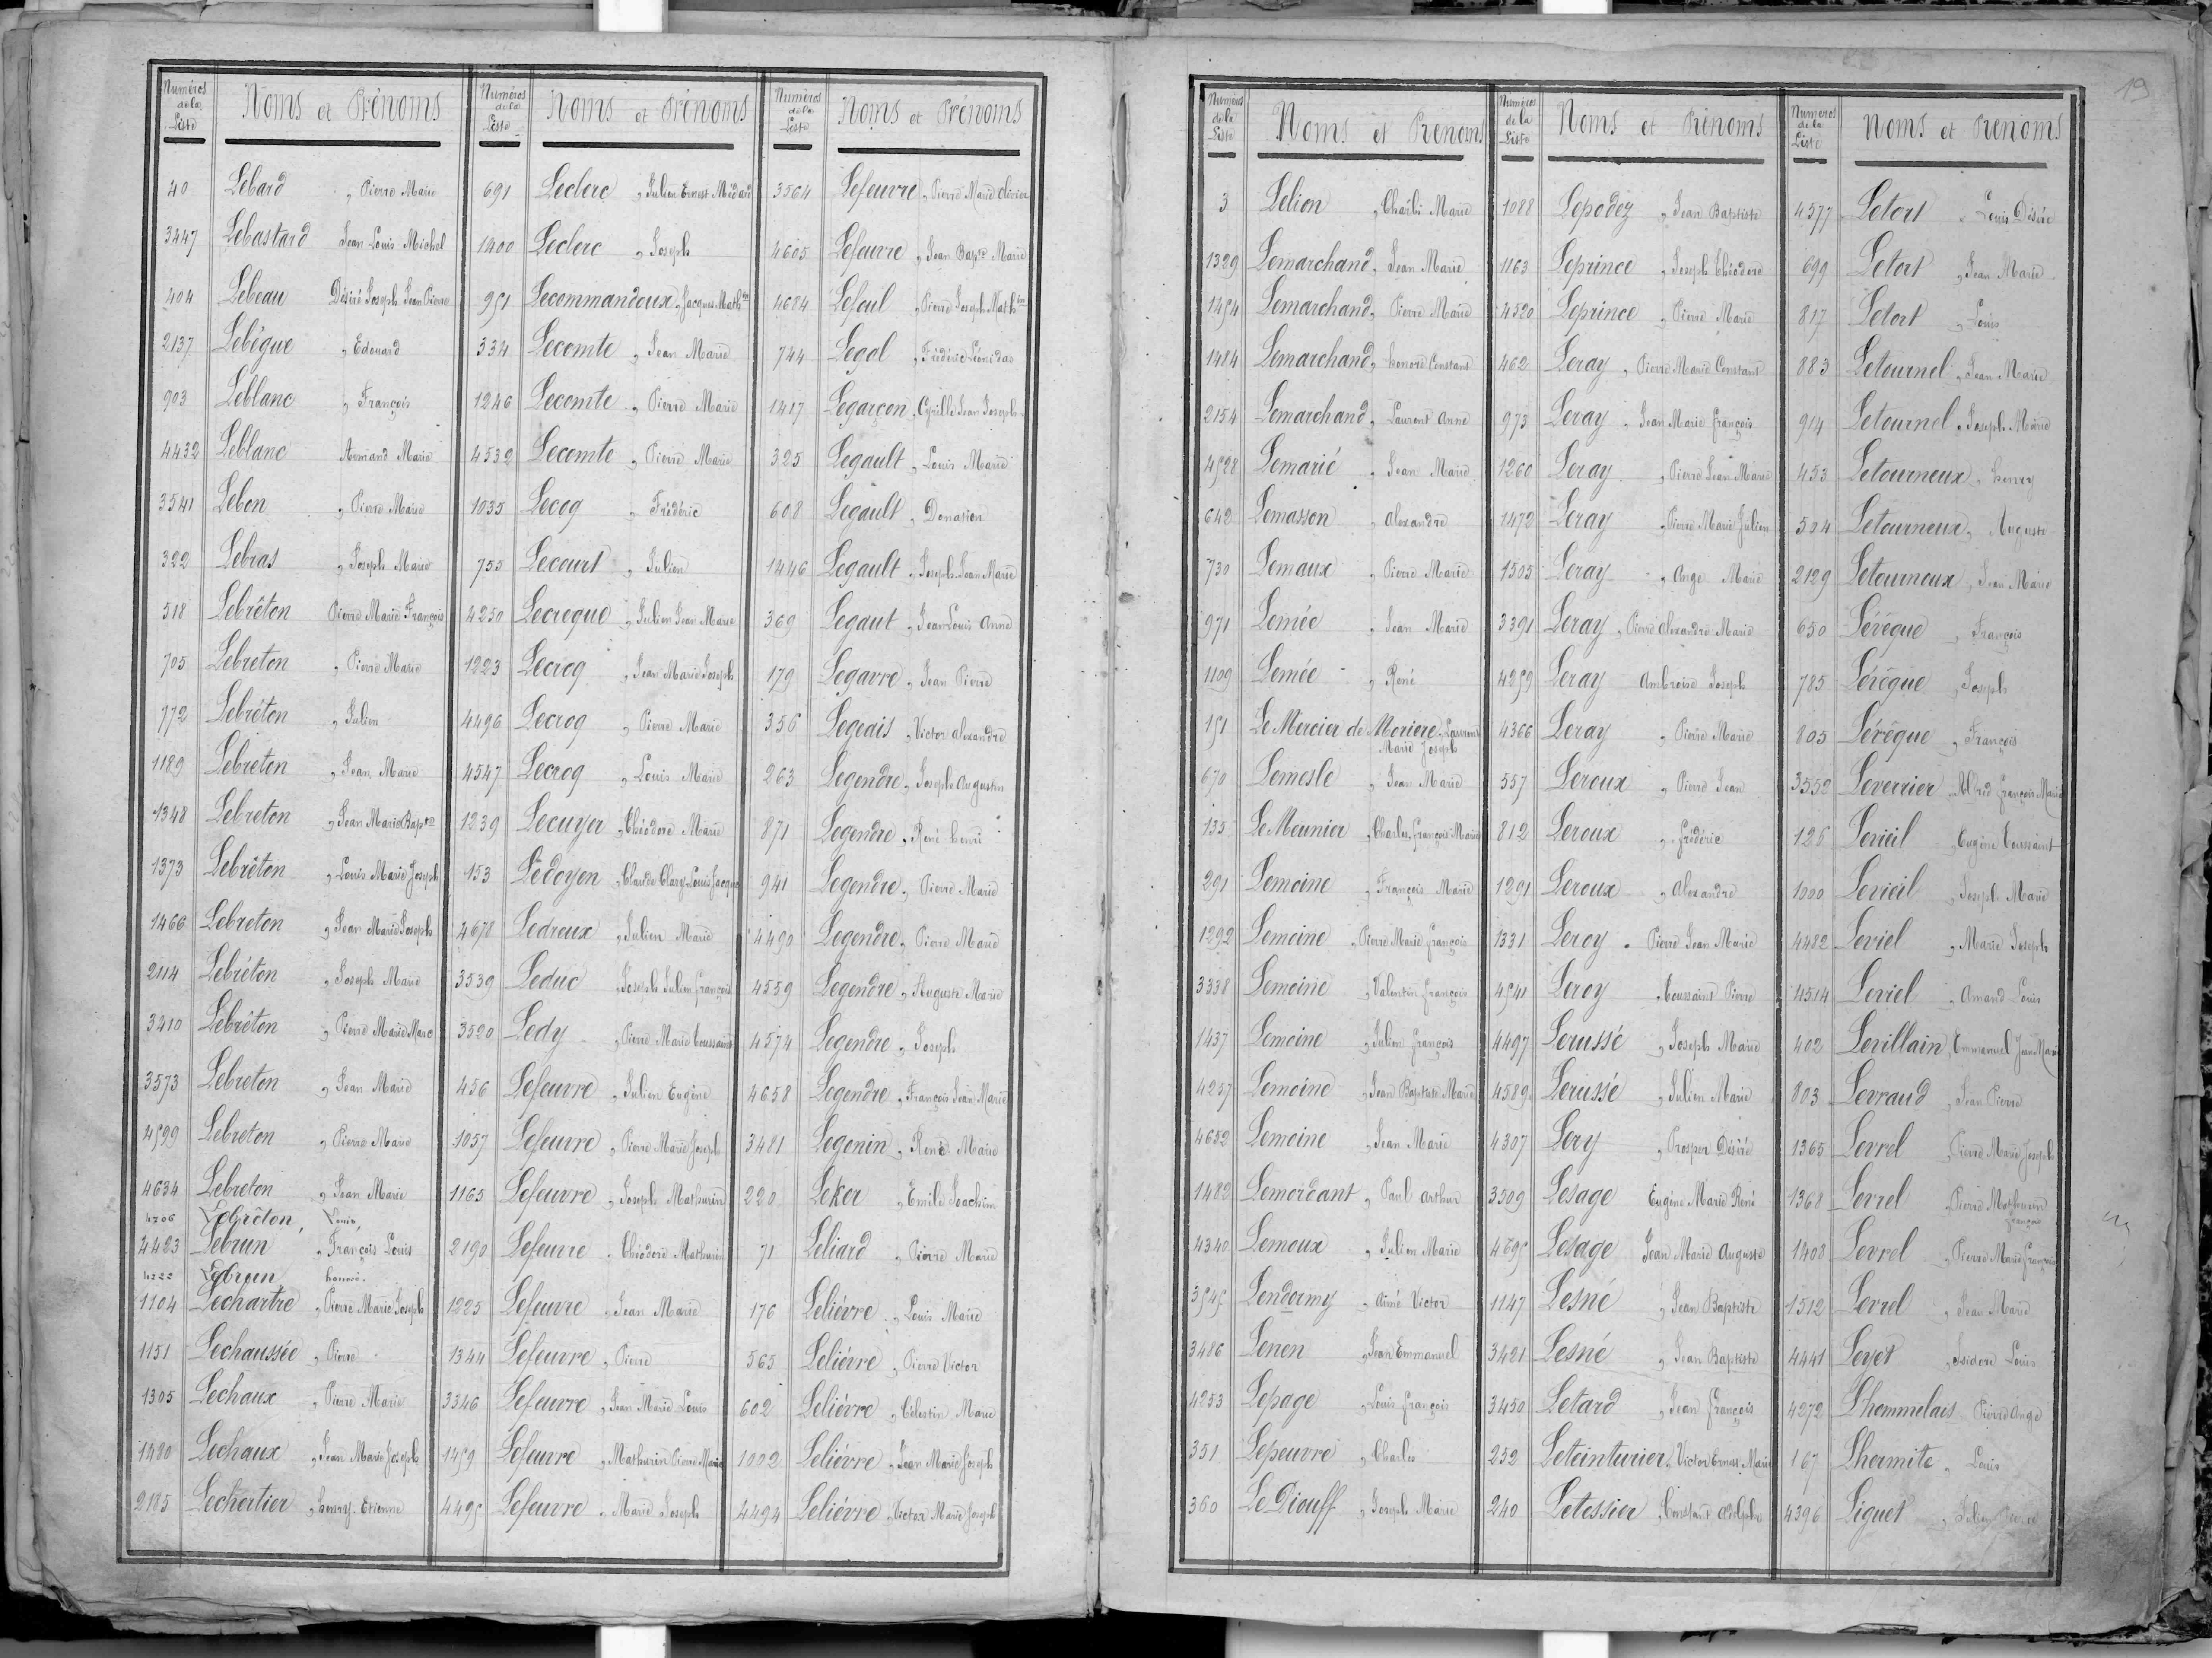 19
Numéros de la Liste Noms et Prénoms
40 Lebard „ Pierre Marie
3447 Lebastard Jean Louis Michel
404 Lebeau Désiré Joseph Jean Pierre
2137 Lebégue „ Edouard
903 Leblanc „ François
4432 Leblanc Armand Marie
3541 Lebon „ Pierre Marie
322 Lebras „ Joseph Marie
518 Lebrêton Pierre Marie François
705 Lebreton „ Pierre Marie
772 Lebréton „ Julien
1189 Lebréton „ Jean Marie
1348 Lebreton „ Jean Marie Bapte
1373 Lebrêton „ Louis Marie Joseph
1466 Lebreton „ Jean Marie Joseph
2114 Lebréton „ Joseph Marie
3410 Lebréton „ Pierre Marie Marc
3573 Lebreton „ Jean Marie
4599 Lebreton „ Pierre Marie
4634 Lebreton „ Jean Marie
4706 Lebrêton, Louis,
4423 Lebrun „ François Louis
Lebrun honoré.
1104 Lechartre „ Pierre Marie Joseph
1151 Lechaussée „ Pierre
1305 Lechaux „ Pierre Marie
1420 Lechaux „ Jean Marie Joseph
2185 Lechertier „ henry Etienne
Numéros de la Liste Noms et Prénoms
691 Leclerc „ Julien Ernest Médard
1400 Leclerc „ Joseph
951 Lecommandoux „ Jacques Math
334 Lecomte „ Jean Marie
1246 Lecomte „ Pierre Marie
4532 Lecomte „ Pierre Marie
1035 Lecoq „ Frédéric
755 Lecourt „ Julien
4250 Lecreque „ Julien Jean Marie
1223 Lecroq „ Jean Marie Joseph
4496 Lecroq „ Pierre Marie
4547 Lecroq „ Louis Marie
1239 Lecuyer „ Théodore Marie
153 Ledoyen „ Claude Clary Louis Jacques
4678 Ledreux „ Julien Marie
3539 Leduc „ Joseph Julien françois
3520 Ledy „ Pierre Marie toussaint
456 Lefeuvre „ Julien Eugène
1057 Lefeuvre „ Pierre Marie Joseph
1165 Lefeuvre „ Joseph Mathurin
2190 Lefeuvre „ Théodore Mathurin
1225 Lefeuvre „ Jean Marie
1344 Lefeuvre „ Pierre
3346 Lefeuvre „ Jean Marie Louis
1459 Lefeuvre „ Mathurin Pierre Marie
4495 Lefeuvre „ Marie Joseph
Numéros de la Liste Noms et Prénoms
3564 Lefeuvre „ Pierre Marie Olivier
4605 Lefeuvre „ Jean Bapte Marie
4684 Lefoul „ Pierre Joseph Math
744 Legal „ Frédéric Léonidas
1417 Legarçon „ Cyrille Jean Joseph
325 Legault „ Louis Marie
608 Legault „ Donatien
1446 Legault „ Joseph Jean Marie
369 Legaut „ Jean Louis Anne
179 Legavre „ Jean Pierre
356 Legeais „ Victor alexandre
263 Legendre „ Joseph Augustin
871 Legendre „ René henri
941 Legendre „ Pierre Marie
4490 Legendre „ Pierre Marie
4559 Legendre „ Auguste Marie
4574 Legendre „ Joseph
4658 Legendre „ François Jean Marie
3481 Legonin „ René Marie
220 Leker „ Emile Joachim
71 Leliard „ Pierre Marie
176 Leliévre „ Louis Marie
565 Leliévre „ Pierre Victor
602 Leliévre „ Célestin Marie
1002 Leliévre „ Jean Marie Joseph
4494 Leliévre „ Victor Marie Joseph
Numéros de la Liste Noms et Prénoms
3 Lelion „ Charles Marie
1329 Lemarchand „ Jean Marie
1454 Lemarchand „ Pierre Marie
1484 Lemarchand „ honoré Constant
2154 Lemarchand „ Laurent Anne
4528 Lemarié „ Jean Marie
642 Lemasson „ alexandre
730 Lemaux „ Pierre Marie
971 Lemée „ Jean Marie
1109 Lemée „ René
151 Le Mercier de Moriere „
Marie Joseph
670 Lemesle „ Jean Marie
135 Le Meunier „ Charles françois Marie
291 Lemoine „ François Marie
1292 Lemoine „ Pierre Marie françois
3338 Lemoine „ Valentin françois
1437 Lemoine „ Julien françois
4237 Lemoine „ Jean Baptiste Marie
4652 Lemoine „ Jean Marie
1482 Lemordant „ Paul Arthur
4340 Lemoux „ Julien Marie
3545 Lendormy „ Aimé Victor
3486 Lenen „ Jean Emmanuel
4253 Lepage „ Louis françois
351 Lepeuvre „ Charles
360 Le Diouff „ Joseph Marie
Numéros de la Liste Noms et Prénoms
1088 Lepodez „ Jean Baptiste
1163 Leprince „ Joseph Théodore
4520 Leprince „ Pierre Marie
462 Leray „ Pierre Marie Constant
973 Leray „ Jean Marie françois
1260 Leray „ Pierre Jean Marie
1472 Leray „ Pierre Marie Julien
1505 Leray „ Ange Marie
3391 Leray „ Pierre Alexandre Marie
4259 Leray Ambroise Joseph
4366 Leray „ Pierre Marie
557 Leroux „ Pierre Jean
812 Leroux „ frédéric
1291 Leroux „ Alexandre
1331 Leroy „ Pierre Jean Marie
4541 Leroy „ toussaint Pierre
4497 Lerussé „ Joseph Marie
4589 Lerussé „ Julien Marie
4307 Lery „ Prosper Désiré
3509 Lesage Eugène Marie René
4695 Lesage Jean Marie Auguste
1147 Lesné „ Jean Baptiste
3421 Lesné „ Jean Baptiste
3450 Letard „ Jean françois
252 Leteinturier „ Victor Ernest Marie
240 Letessier „ Constant Adolphe
Numéros de la Liste Noms et Prénoms
4577 Letort „ Louis Désiré
699 Letort „ Jean Marie
817 Letort „ Louis
883 Letournel „ Jean Marie
914 Letournel „ Joseph Marie
453 Letourneux „ henry
504 Letourneux „ Auguste
2129 Letourneux „ Jean Marie
650 Lévêque „ François
785 Lévêque „ Joseph
805 Lévêque „ François
3552 Leverrier „ Alfred françois Marie
126 Levieil „ Eugène toussaint
1000 Levieil „ Joseph Marie
4482 Leviel „ Marie Joseph
4514 Leviel „ Amand Louis
402 Levillain „ Emmanuel Jean Marie
803 Levraud „ Jean Pierre
1365 Levrel „ Pierre Marie Joseph
1368 Levrel „ Pierre Mathurin
françois
1408 Levrel „ Pierre Marie françois
1512 Levrel „ Jean Marie
4441 Leyet „ Isidore Louis
4272 Lhommelais Pierre Ange
167 Lhermite „ Louis
4396 Liguet „ Julien